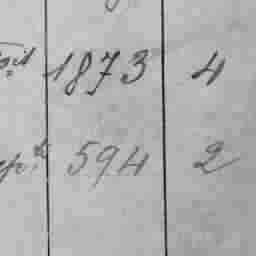 1873 4
594 2